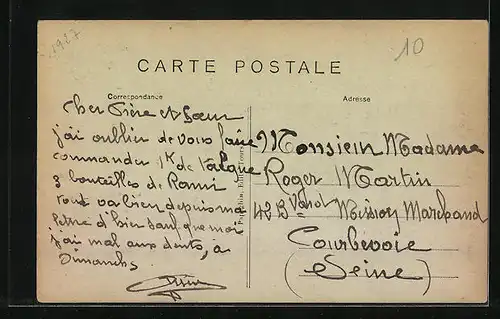 1927
10
CARTE POSTALE
Correspondance
Adresse
Cher Frère et Sœur
j'ai oublié de vous faire
commander 1K de
3 bouteilles de
tout va bien depuis ma
lettre d'hier sauf que moi
j'ai mal aux dents, à
Dimanche
Monsieur Madame
Roger Martin
42 B Mission Marchand
Courbevoie
(Seine)